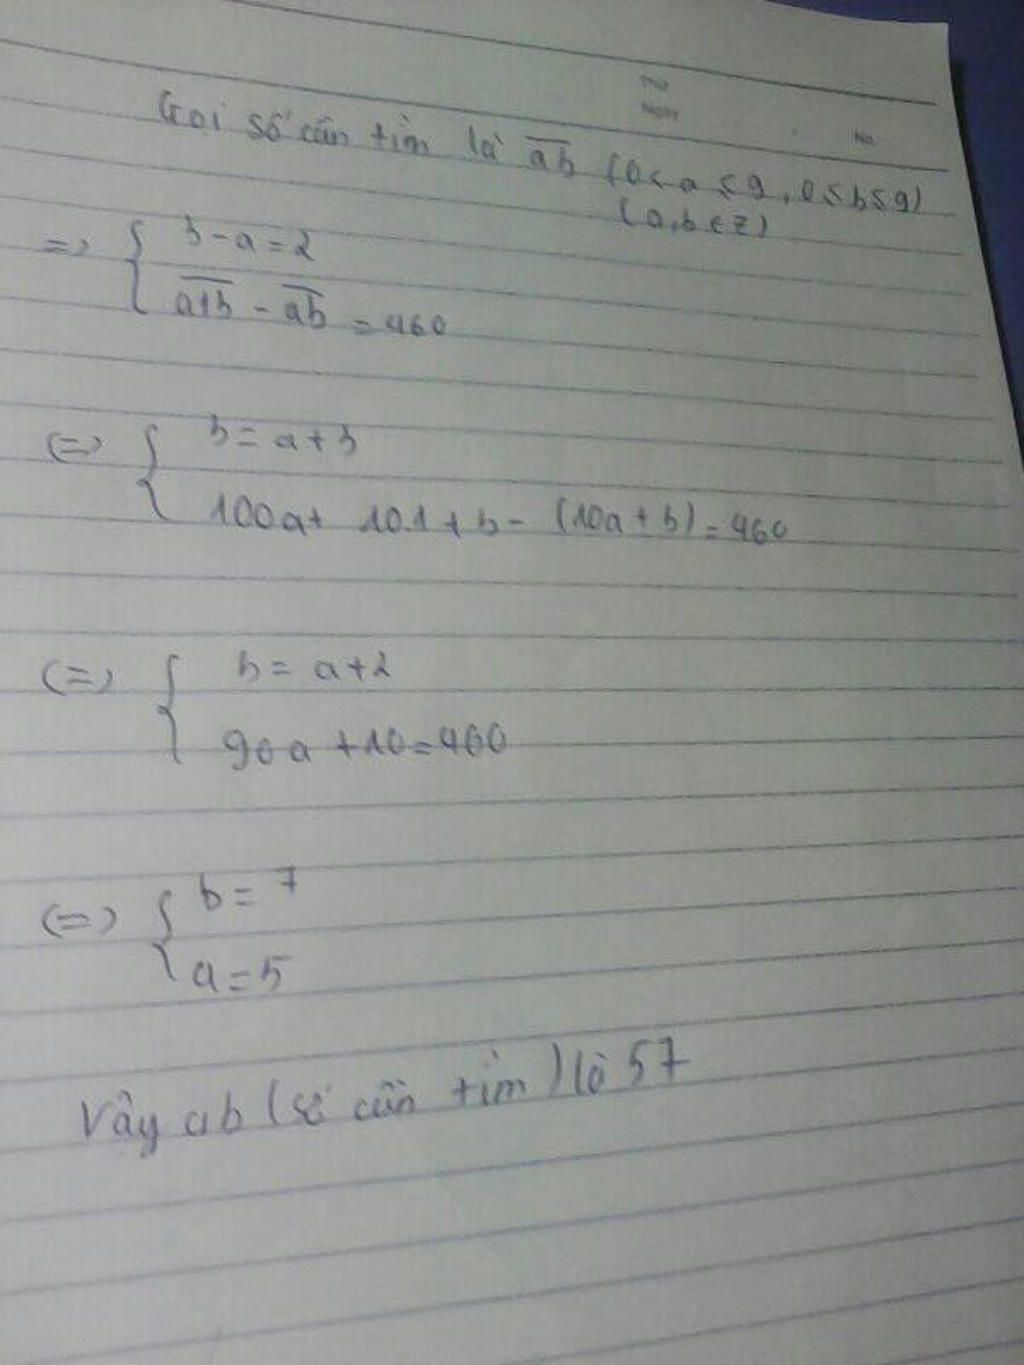 Thứ
Ngày
No
Gọi số cần tìm là ab (0 < a ≤ 9, 0 ≤ b ≤ 9)
(a, b ∈ Z)
=> { b - a = 2
a1b - ab = 460
<=> { b = a + 3
100a + 10.1 + b - (10a + b) = 460
<=> { b = a + 2
90a + 10 = 460
<=> { b = 7
a = 5
Vậy ab (số cần tìm) là 57